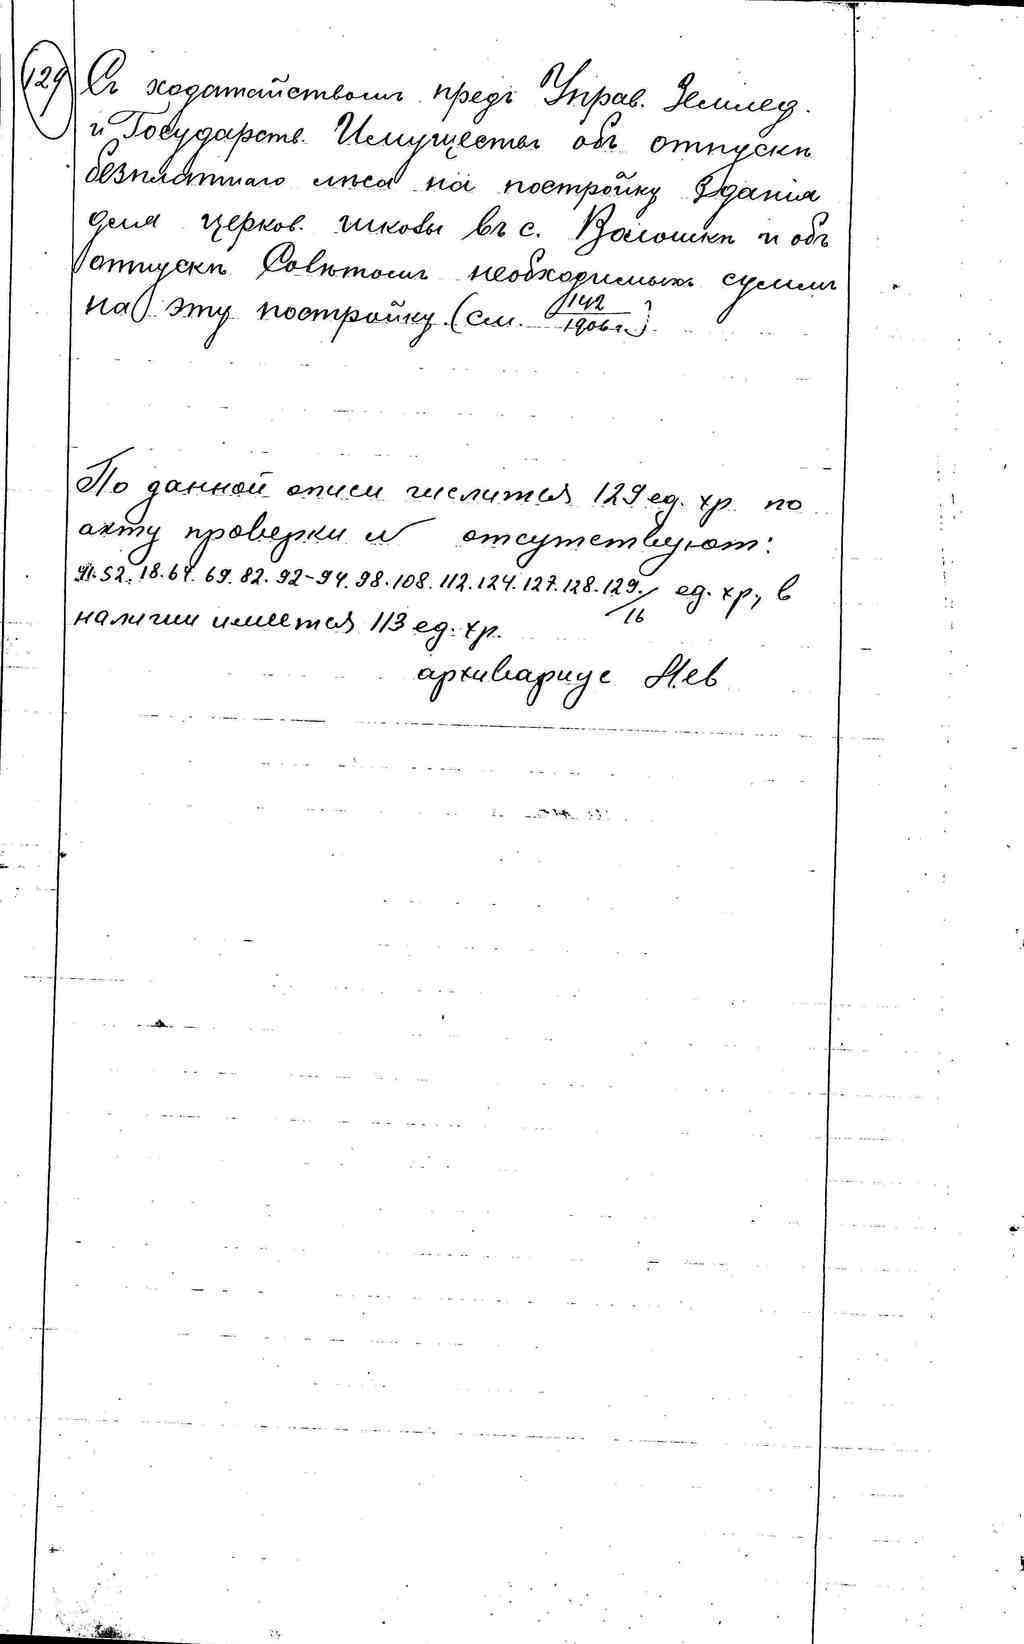 129 Съ ходатайствомъ предъ Управ. Землед.
и Государств. Имуществъ объ отпускѣ
безплатнаго лѣса на постройку зданія
для церков. школы въ с. Волошкѣ и объ
отпускѣ Совѣтомъ необходимыхъ суммъ
на эту постройку. (см. 142/1906 г.).
По данной описи числится 129 ед. хр. по
акту проверки № отсутствуют:
41. 52. 18. 64. 69. 82. 92-94. 98. 108. 112. 124. 127. 128. 129. / 16 ед. хр., в
наличии имеется 113 ед. хр.
архивариус